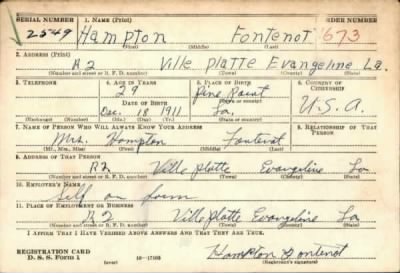 SERIAL NUMBER 1. NAME (Print) ORDER NUMBER
2549 Hampton Fontenot 673
(First) (Middle) (Last)
2. ADDRESS (Print)
R2 Ville Platte Evangeline La.
(Number and street or R. F. D. number) (Town) (County) (State)
3. TELEPHONE 4. AGE IN YEARS 5. PLACE OF BIRTH 6. COUNTRY OF CITIZENSHIP
29 Pine Point
DATE OF BIRTH (Town or county)
Dec. 18 1911 La. U.S.A.
(Exchange) (Number) (Mo.) (Day) (Yr.) (State or country)
7. NAME OF PERSON WHO WILL ALWAYS KNOW YOUR ADDRESS 8. RELATIONSHIP OF THAT PERSON
Mrs. Hampton Fontenot
(Mr., Mrs., Miss) (First) (Middle) (Last)
9. ADDRESS OF THAT PERSON
R2 Ville Platte Evangeline La
(Number and street or R. F. D. number) (Town) (County) (State)
10. EMPLOYER'S NAME
Self on farm
11. PLACE OF EMPLOYMENT OR BUSINESS
R2 Ville Platte Evangeline La
(Number and street or R. F. D. number) (Town) (County) (State)
I AFFIRM THAT I HAVE VERIFIED ABOVE ANSWERS AND THAT THEY ARE TRUE.
REGISTRATION CARD
D. S. S. Form 1 (over) Hampton Fontenot
(Registrant's signature)